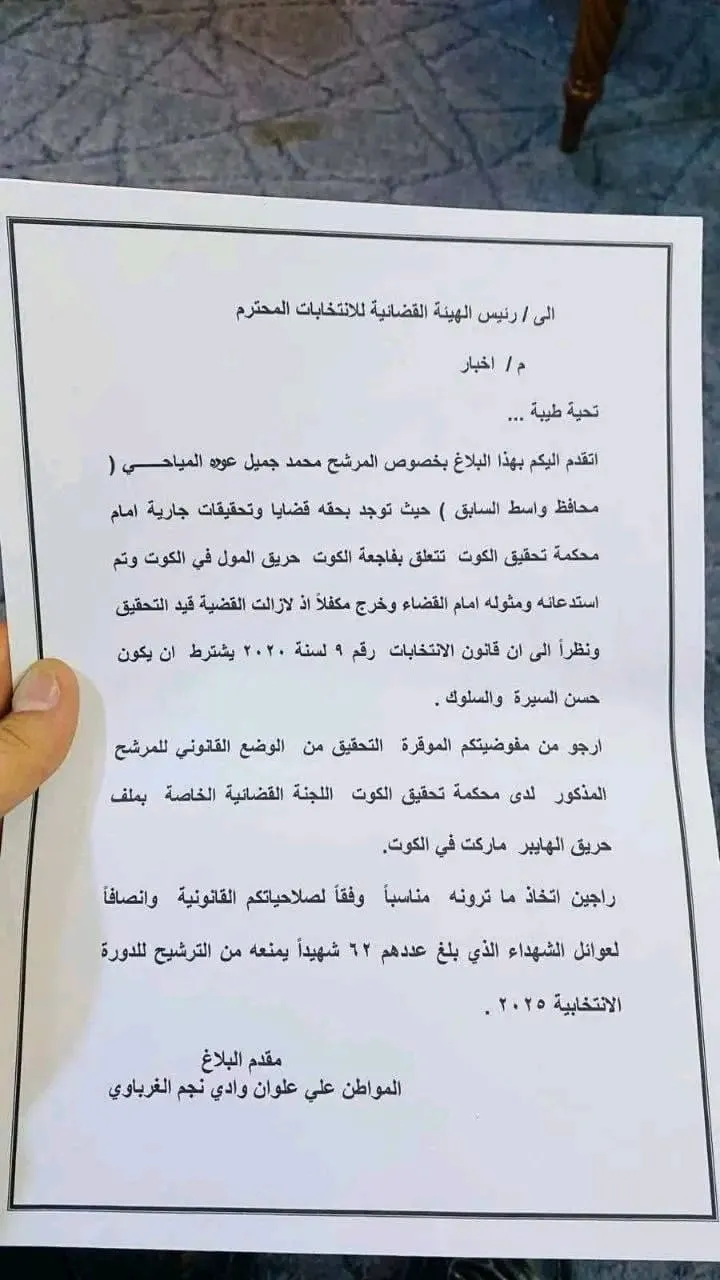 الى / رئيس الهيئة القضائية للانتخابات المحترم
م / اخبار
تحية طيبة ...
اتقدم اليكم بهذا البلاغ بخصوص المرشح محمد جميل عوده المياحـــــي (
محافظ واسط السابق ) حيث توجد بحقه قضايا وتحقيقات جارية امام
محكمة تحقيق الكوت تتعلق بفاجعة الكوت حريق المول في الكوت وتم
استدعائه ومثوله امام القضاء وخرج مكفلاً اذ لازالت القضية قيد التحقيق
ونظراً الى ان قانون الانتخابات رقم ٩ لسنة ٢٠٢٠ يشترط ان يكون
حسن السيرة والسلوك .
ارجو من مفوضيتكم الموقرة التحقيق من الوضع القانوني للمرشح
المذكور لدى محكمة تحقيق الكوت اللجنة القضائية الخاصة بملف
حريق الهايبر ماركت في الكوت.
راجين اتخاذ ما ترونه مناسباً وفقاً لصلاحياتكم القانونية وانصافاً
لعوائل الشهداء الذي بلغ عددهم ٦٢ شهيداً يمنعه من الترشيح للدورة
الانتخابية ٢٠٢٥ .
مقدم البلاغ
المواطن علي علوان وادي نجم الغرباوي